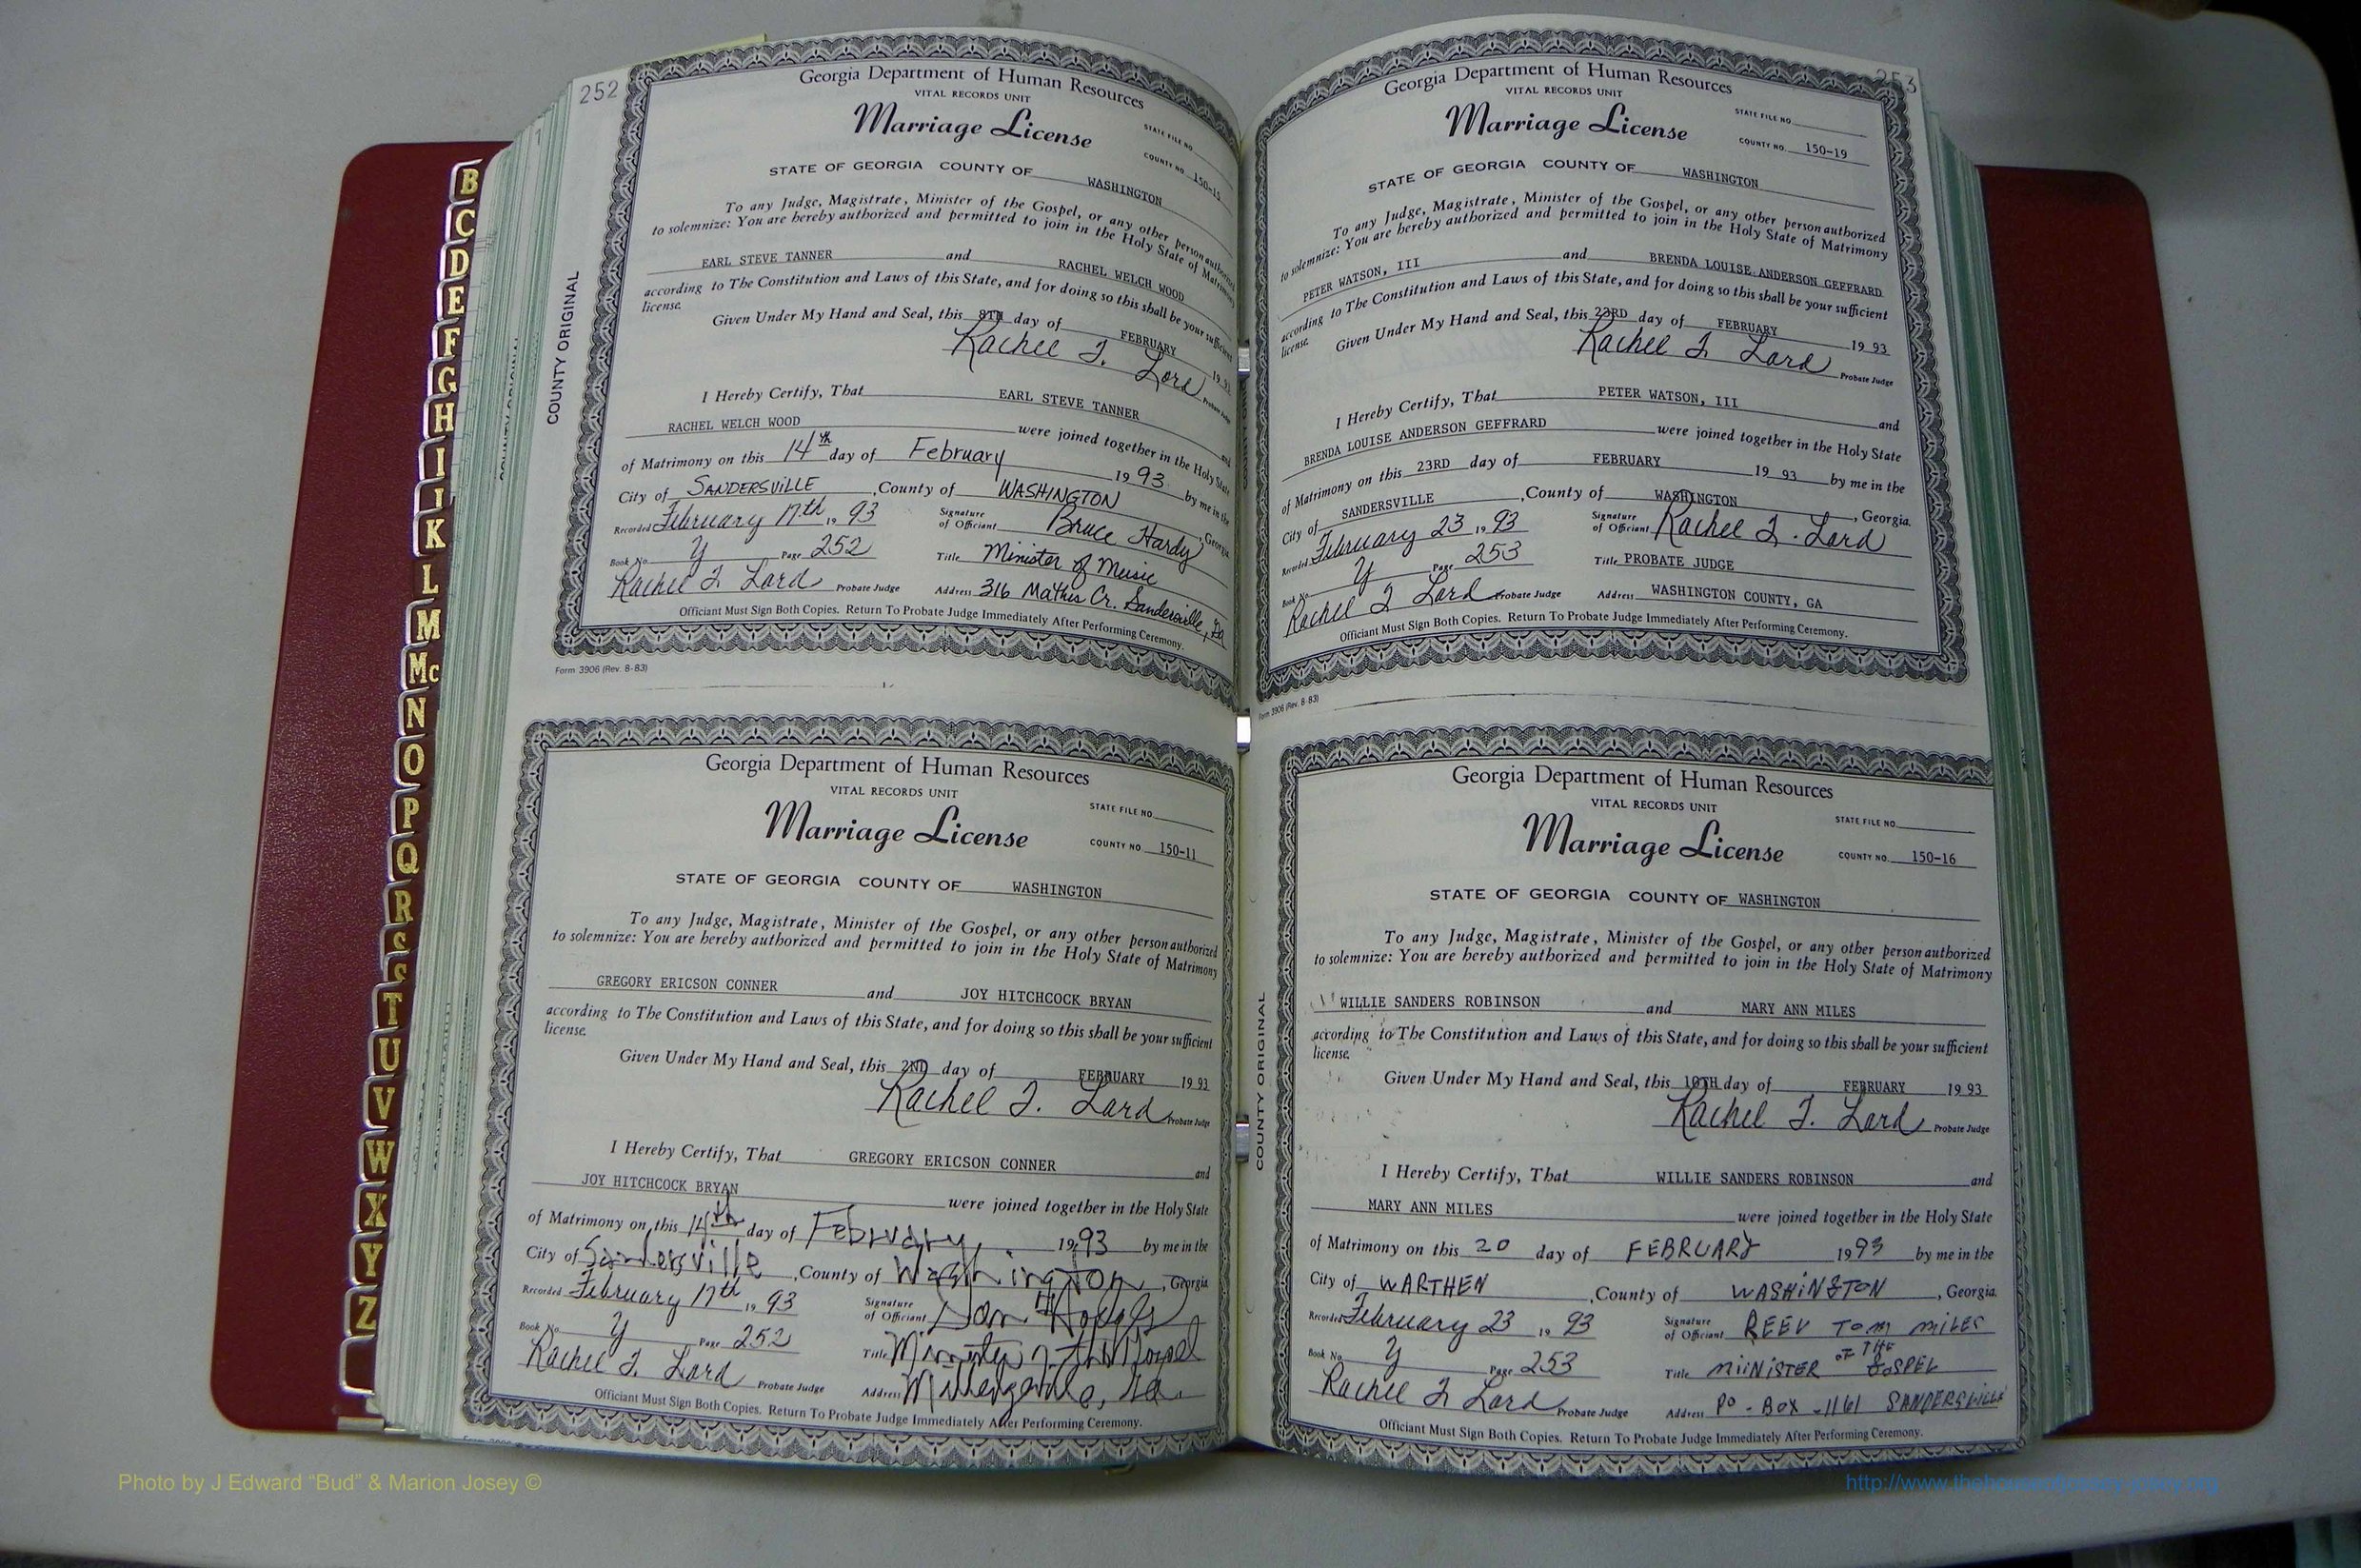 252
Georgia Department of Human Resources
VITAL RECORDS UNIT
Marriage License
STATE FILE NO.
COUNTY NO. 150-15
STATE OF GEORGIA COUNTY OF WASHINGTON
To any Judge, Magistrate, Minister of the Gospel, or any other person authorized
to solemnize: You are hereby authorized and permitted to join in the Holy State of Matrimony
EARL STEVE TANNER and RACHEL WELCH WOOD
according to The Constitution and Laws of this State, and for doing so this shall be your sufficient
license.
Given Under My Hand and Seal, this 8TH day of FEBRUARY 19 93
Rachel T. Lord Probate Judge
I Hereby Certify, That EARL STEVE TANNER and
RACHEL WELCH WOOD were joined together in the Holy State
of Matrimony on this 14th day of February 19 93 by me in the
City of SANDERSVILLE, County of WASHINGTON, Georgia
Recorded February 17th, 19 93 Signature of Officiant Bruce Hardy
Book No. Y Page 252 Title Minister of Music
Rachel T. Lord Probate Judge Address 316 Mathis Cr. Sandersville, Ga
Officiant Must Sign Both Copies. Return To Probate Judge Immediately After Performing Ceremony.
Form 3906 (Rev. 8-83)
COUNTY ORIGINAL
Georgia Department of Human Resources
VITAL RECORDS UNIT
Marriage License
STATE FILE NO.
COUNTY NO. 150-11
STATE OF GEORGIA COUNTY OF WASHINGTON
To any Judge, Magistrate, Minister of the Gospel, or any other person authorized
to solemnize: You are hereby authorized and permitted to join in the Holy State of Matrimony
GREGORY ERICSON CONNER and JOY HITCHCOCK BRYAN
according to The Constitution and Laws of this State, and for doing so this shall be your sufficient
license.
Given Under My Hand and Seal, this 2ND day of FEBRUARY 19 93
Rachel T. Lord Probate Judge
I Hereby Certify, That GREGORY ERICSON CONNER and
JOY HITCHCOCK BRYAN were joined together in the Holy State
of Matrimony on this 14th day of February, 19 93 by me in the
City of Sandersville, County of Washington, Georgia
Recorded February 17th, 19 93 Signature of Officiant Don
Book No. Y Page 252 Title Minister of the Gospel
Rachel T. Lord Probate Judge Address Milledgeville, Ga.
Officiant Must Sign Both Copies. Return To Probate Judge Immediately After Performing Ceremony.
253
Georgia Department of Human Resources
VITAL RECORDS UNIT
Marriage License
STATE FILE NO.
COUNTY NO. 150-19
STATE OF GEORGIA COUNTY OF WASHINGTON
To any Judge, Magistrate, Minister of the Gospel, or any other person authorized
to solemnize: You are hereby authorized and permitted to join in the Holy State of Matrimony
PETER WATSON, III and BRENDA LOUISE ANDERSON GEFFRARD
according to The Constitution and Laws of this State, and for doing so this shall be your sufficient
license.
Given Under My Hand and Seal, this 23RD day of FEBRUARY 19 93
Rachel T. Lord Probate Judge
I Hereby Certify, That PETER WATSON, III and
BRENDA LOUISE ANDERSON GEFFRARD were joined together in the Holy State
of Matrimony on this 23RD day of FEBRUARY 19 93 by me in the
City of SANDERSVILLE, County of WASHINGTON, Georgia.
Recorded February 23 19 93 Signature of Officiant Rachel T. Lord
Book No. Y Page 253 Title PROBATE JUDGE
Rachel T. Lord Probate Judge Address WASHINGTON COUNTY, GA
Officiant Must Sign Both Copies. Return To Probate Judge Immediately After Performing Ceremony.
Form 3906 (Rev. 8-83)
Georgia Department of Human Resources
VITAL RECORDS UNIT
Marriage License
STATE FILE NO.
COUNTY NO. 150-16
STATE OF GEORGIA COUNTY OF WASHINGTON
To any Judge, Magistrate, Minister of the Gospel, or any other person authorized
to solemnize: You are hereby authorized and permitted to join in the Holy State of Matrimony
WILLIE SANDERS ROBINSON and MARY ANN MILES
according to The Constitution and Laws of this State, and for doing so this shall be your sufficient
license.
Given Under My Hand and Seal, this 10TH day of FEBRUARY 19 93
Rachel T. Lord Probate Judge
I Hereby Certify, That WILLIE SANDERS ROBINSON and
MARY ANN MILES were joined together in the Holy State
of Matrimony on this 20 day of FEBRUARY 19 93 by me in the
City of WARTHEN, County of WASHINGTON, Georgia.
Recorded February 23, 19 93 Signature of Officiant REEV TOM MILES
Book No. Y Page 253 Title MIINISTER OF THE GOSPEL
Rachel T. Lord Probate Judge Address PO - BOX - 1161 SANDERSVILLE
Officiant Must Sign Both Copies. Return To Probate Judge Immediately After Performing Ceremony.
COUNTY ORIGINAL
B
C
D
E
F
G
H
I
K
L
M
Mc
N
O
P
Q
R
S
T
U
V
W
X
Y
Z
Photo by J Edward “Bud” & Marion Josey ©
http://www.thehouseofjossey-josey.org